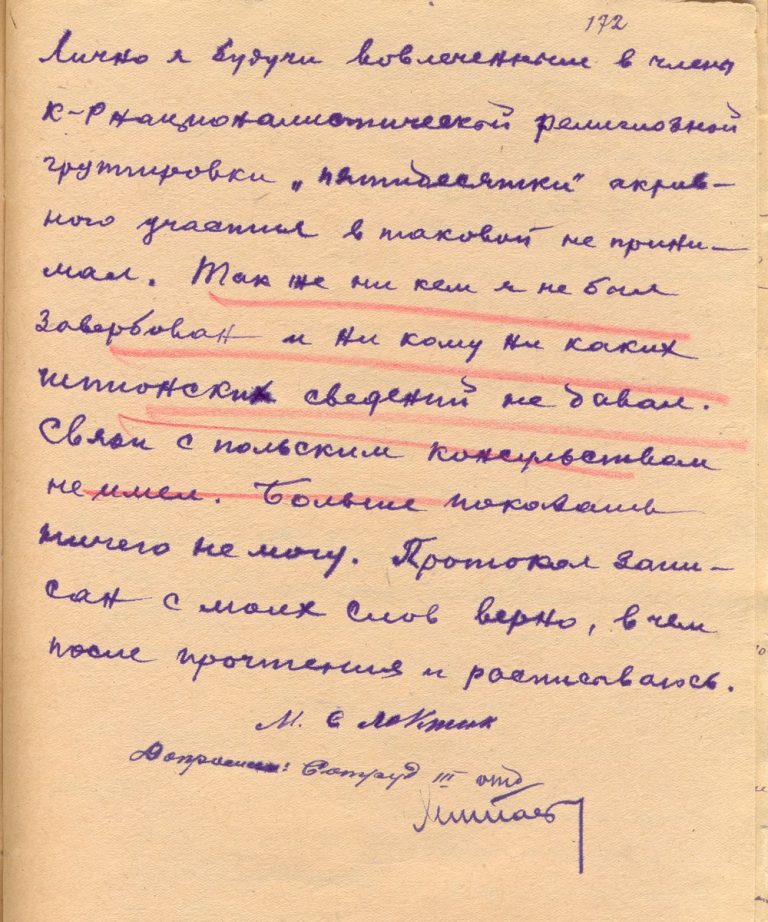 172
Лично я будучи вовлеченным в члены
к-р националистической религиозной
группировки „пятидесятки" актив-
ного участия в таковой не прини-
мал. Так же ни кем я не был
завербован и ни кому ни каких
шпионских сведений не давал.
Связи с польским консульством
не имел. Больше показать
ничего не могу. Протокол запи-
сан с моих слов верно, в чем
после прочтения и расписываюсь.
М. Е
Допросил: Сотруд III отд